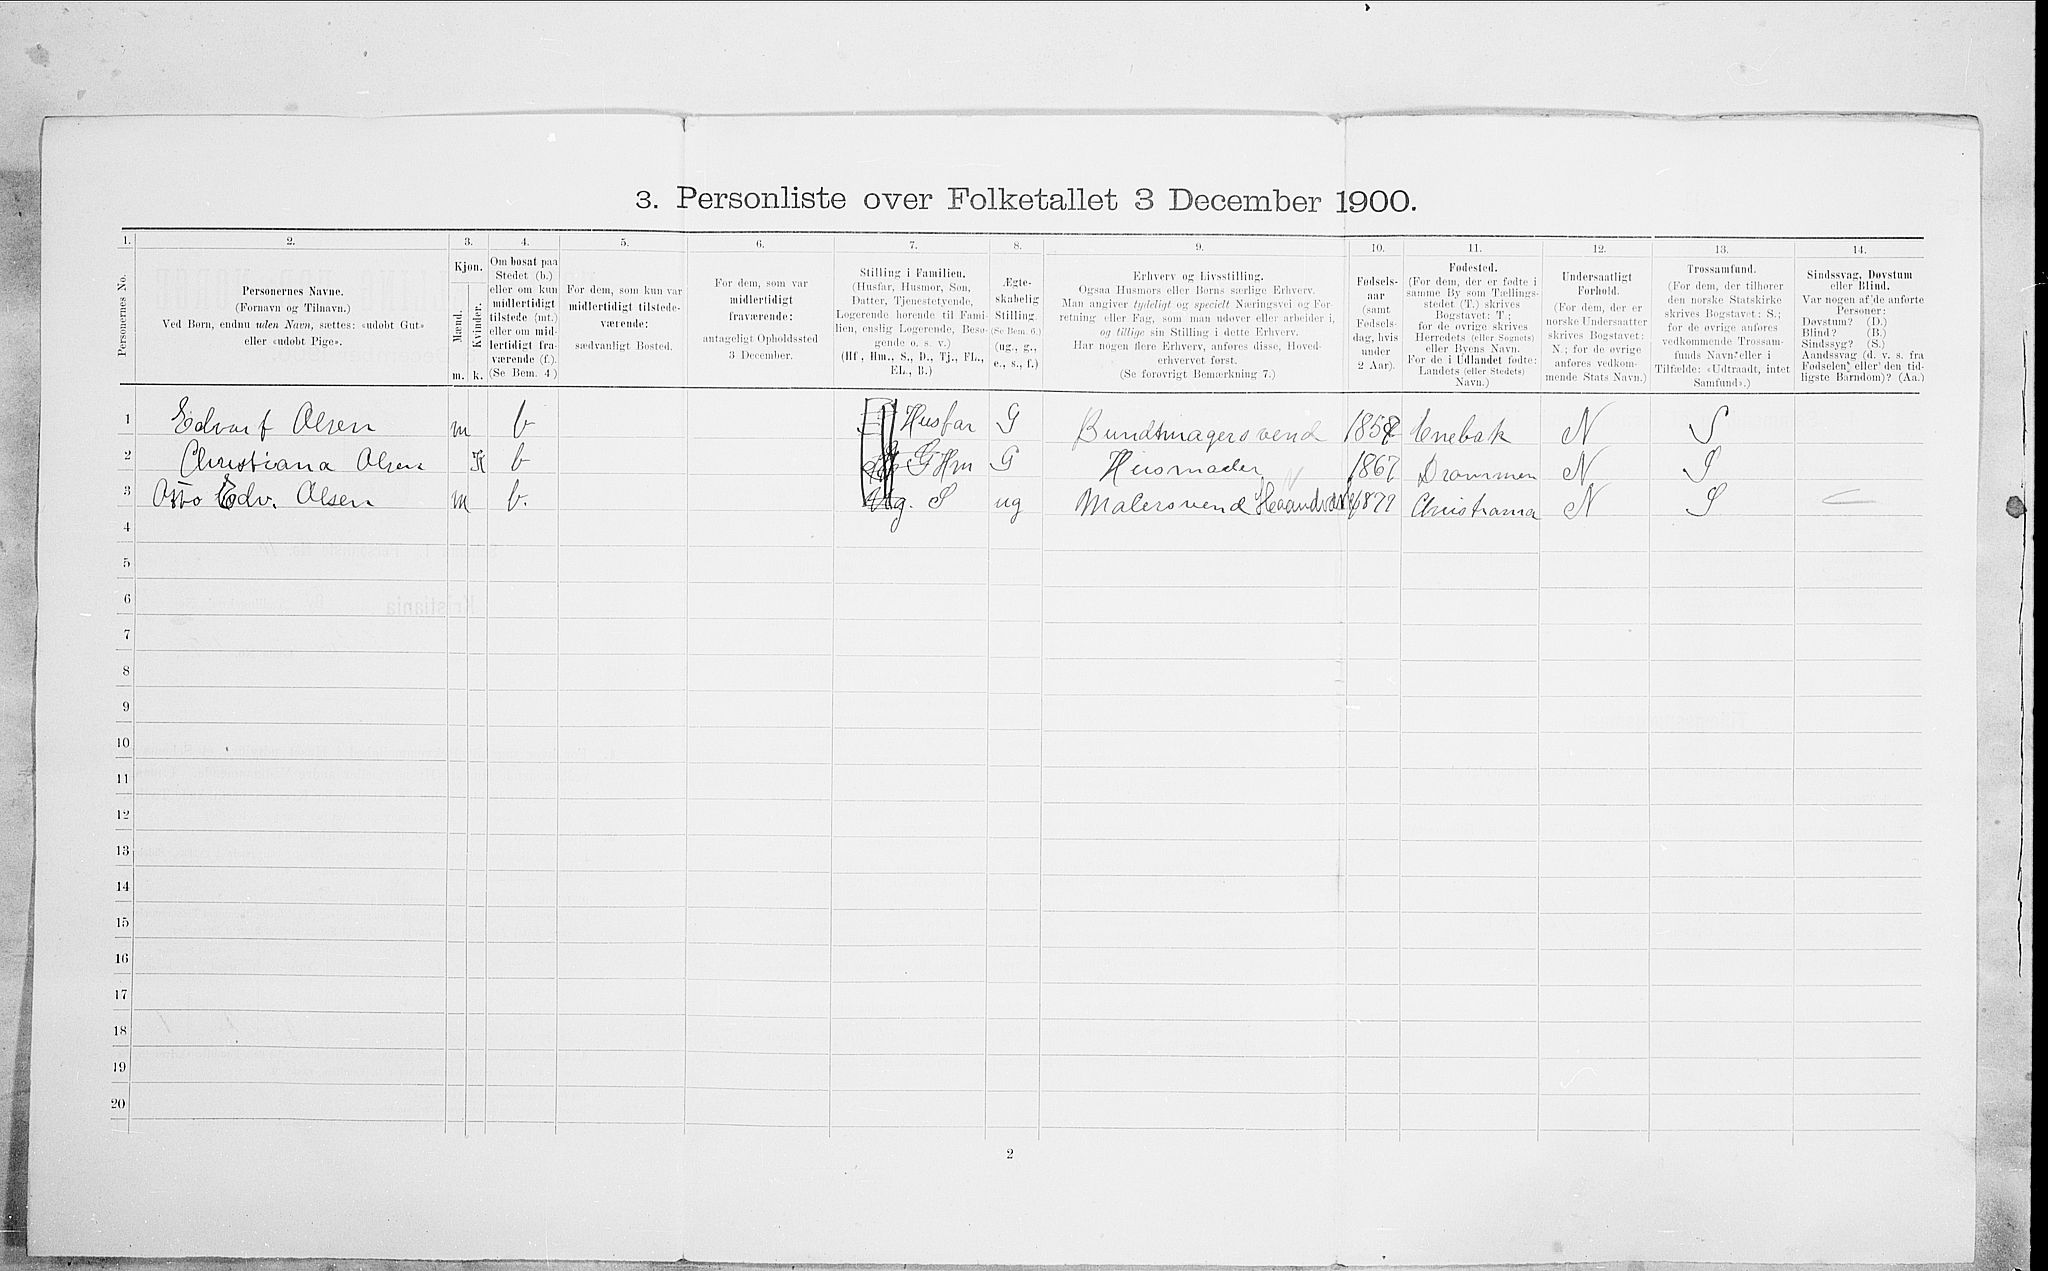 3. Personliste over Folketallet 3 December 1900.
1. 2. 3. 4. 5. 6. 7. 8. 9. 10. 11. 12. 13. 14.
Personernes No.
Personernes Navne.
(Fornavn og Tilnavn.)
Ved Børn, endnu uden Navn, sættes: «udøbt Gut»
eller «udøbt Pige».
Kjøn.
Mænd.
Kvinder.
m. k.
Om bosat paa
Stedet (b.)
eller om kun
midlertidigt
tilstede (mt.)
eller om mid-
lertidigt fra-
værende (f.).
(Se Bem. 4.)
For dem, som kun var
midlertidigt tilstede-
værende:
sædvanligt Bosted.
For dem, som var
midlertidigt
fraværende:
antageligt Opholdssted
3 December.
Stilling i Familien.
(Husfar, Husmor, Søn,
Datter, Tjenestetyende,
Logerende hørende til Fami-
lien, enslig Logerende, Besø-
gende o. s. v.)
(Hf., Hm., S., D., Tj., FL.,
EL., B.)
Ægte-
skabelig
Stilling.
(Se Bem. 6.)
(ug., g.,
e., s., f.)
Erhverv og Livsstilling.
Ogsaa Husmors eller Børns særlige Erhverv.
Man angiver tydeligt og specielt Næringsvei og For-
retning eller Fag, som man udøver eller arbeider i,
og tillige sin Stilling i dette Erhverv.
Har nogen flere Erhverv, anføres disse, Hoved-
erhvervet først.
(Se forøvrigt Bemærkning 7.)
Fødsels-
aar
(samt
Fødsels-
dag, hvis
under
2 Aar).
Fødested.
(For dem, der er fødte i
samme By som Tællings-
stedet (T.) skrives
Bogstavet: T;
for de øvrige skrives
Herredets (eller Sognets)
eller Byens Navn.
For de i Udlandet fødte:
Landets (eller Stedets)
Navn.)
Undersaatligt
Forhold.
(For dem, der er
norske Undersaatter
skrives Bogstavet:
N.; for de øvrige
anføres vedkom-
mende Stats Navn.)
Trossamfund.
(For dem, der tilhører
den norske Statskirke
skrives Bogstavet: S.;
for de øvrige anføres
vedkommende Trossam-
funds Navn eller i
Tilfælde: «Udtraadt, intet
Samfund».)
Sindssvag, Døvstum
eller Blind.
Var nogen af de anførte
Personer:
Døvstum? (D.)
Blind? (B.)
Sindssyg? (S.)
Aandssvag (d. v. s. fra
Fødselen eller den tid-
ligste Barndom)? (Aa.)
1 Edvart Olsen m b Husfar G Bundtmagersvend 1858 Enebak N S
2 Christiana Olsen K b G Hm G Husmoder 1867 Drammen N S
3 Otto Edv. Olsen m b. S ug Malersvend Haandværk 1877 Christiania N S
4
5
6
7
8
9
10
11
12
13
14
15
16
17
18
19
20
2